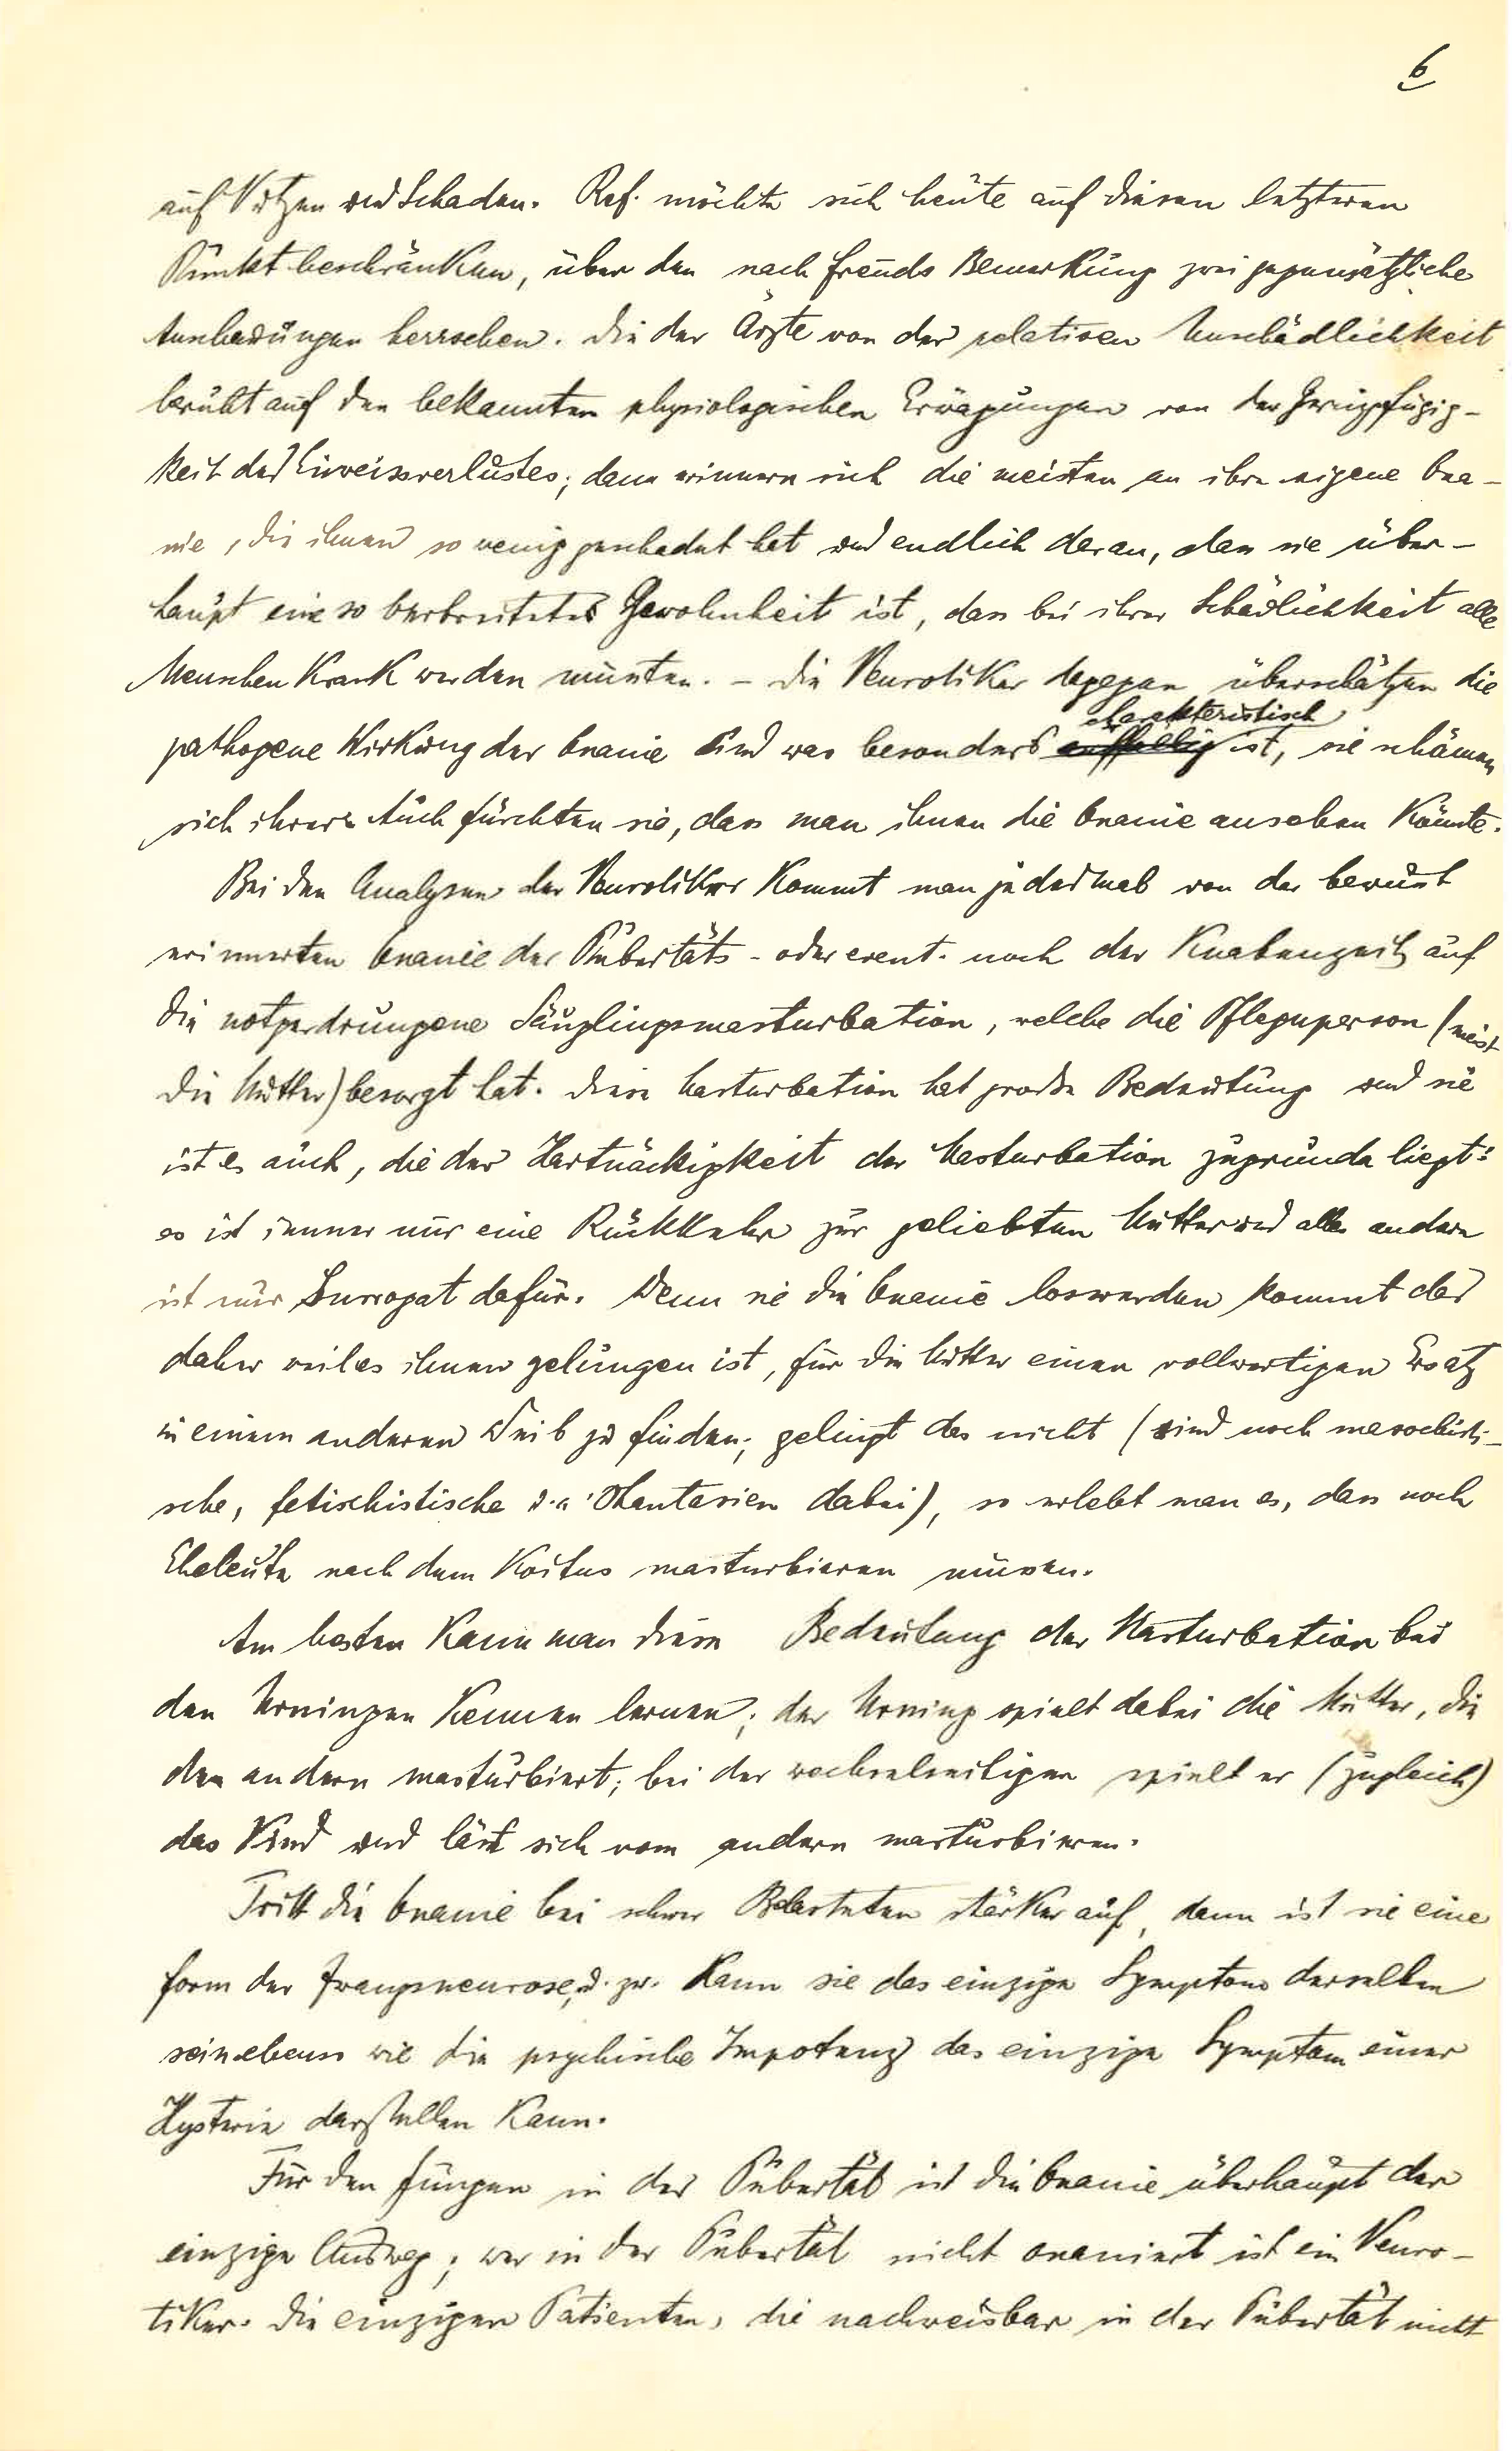 6
auf Nutzen und Schaden. Ref. möchte sich heute auf diesen letzteren
Punkt beschränken, über den nach Freuds Bemerkung zwei gegensätzliche
Anschauungen herrschen. Die der Ärzte von der relativen Unschädlichkeit
beruht auf den bekannten physiologischen Erwägungen von der Geringfügig-
keit des Eiweissverlustes; dann erinnern sich die meisten an ihre eigene Ona-
nie, die ihnen so wenig geschadet hat und endlich daran, dass sie über-
haupt eine so verbreitete Gewohnheit ist, dass bei ihrer Schädlichkeit alle
Menschen krank werden müssten. – Die Neurotiker dagegen überschätzen die
charakteristisch
pathogene Wirkung der Onanie und was besonders auffällig ist, sie schämen
sich ihrer. Auch fürchten sie, dass man ihnen die Onanie ansehen könnte.
Bei den Analysen der Neurotiker kommt man jedesmal von der bewusst
erinnerten Onanie der Pubertäts- oder event. noch der Knabenzeit auf
die notgedrungene Säuglingsmasturbation, welche die Pflegeperson (meist
die Mutter) besorgt hat. Diese Masturbation hat grosse Bedeutung und sie
ist es auch, die der Hartnäckigkeit der Masturbation zugrunde liegt:
es ist immer nur eine Rückkehr zur geliebten Mutter und alles andere
ist nur Surrogat dafür. Wenn sie die Onanie loswerden kommt das
daher weil es ihnen gelungen ist, für die Mutter einen vollwertigen Ersatz
in einem anderen Weib zu finden; gelingt das nicht (sind noch masochisti-
sche, fetischistische u.a. Phantasien dabei), so erlebt man es, dass noch
Eheleute nach dem Koitus masturbieren müssen.
Am besten kann man diese Bedeutung der Masturbation bei
den Urningen kennen lernen; der Urning spielt dabei die Mutter, die
den andern masturbiert; bei der wechselseitigen spielt er (zugleich)
das Kind und lässt sich vom andern masturbieren.
Tritt die Onanie bei schwer Belasteten stärker auf, dann ist sie eine
Form der Zwangsneurose, u. zw. kann sie das einzige Symptom derselben
sein ebenso wie die psychische Impotenz das einzige Symptom einer
Hysterie darstellen kann.
Für den Jungen in der Pubertät ist die Onanie überhaupt der
einzige Ausweg; wer in der Pubertät nicht onaniert ist ein Neuro-
tiker. Die einzigen Patienten, die nachweisbar in der Pubertät nicht